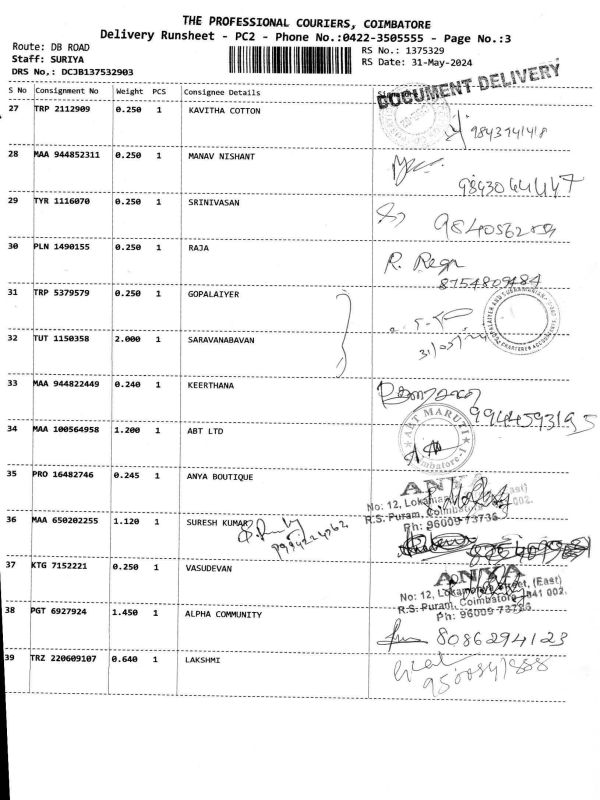 THE PROFESSIONAL COURIERS, COIMBATORE
Delivery Runsheet - PC2 - Phone No.:0422-3505555 - Page No.:3
Route: DB ROAD RS No.: 1375329
Staff: SURIYA RS Date: 31-May-2024
DRS No,: DCJB137532903
DOCUMENT DELIVERY
S No Consignment No Weight PCS Consignee Details
27 TRP 2112909 0.250 1 KAVITHA COTTON
28 MAA 944852311 0.250 1 MANAV NISHANT
29 TYR 1116070 0.250 1 SRINIVASAN
30 PLN 1490155 0.250 1 RAJA
R.
8754809484
31 TRP 5379579 0.250 1 GOPALAIYER
32 TUT 1150358 2.000 1 SARAVANABAVAN
CHARTERED ACCOUNTANTS
33 MAA 944822449 0.240 1 KEERTHANA
9944593195
34 MAA 100564958 1.200 1 ABT LTD
ABT MARUTI
35 PRO 16482746 0.245 1 ANYA BOUTIQUE
ANYA
No: 12,
R.S. Puram, Coimbatore
Ph: 96009 73736
36 MAA 650202255 1.120 1 SURESH KUMAR
37 KTG 7152221 0.250 1 VASUDEVAN
ANYA
No: 12, Street, (East)
R.S. Puram, Coimbatore 641 002.
Ph: 96009 73736
38 PGT 6927924 1.450 1 ALPHA COMMUNITY
8086294123
39 TRZ 220609107 0.640 1 LAKSHMI